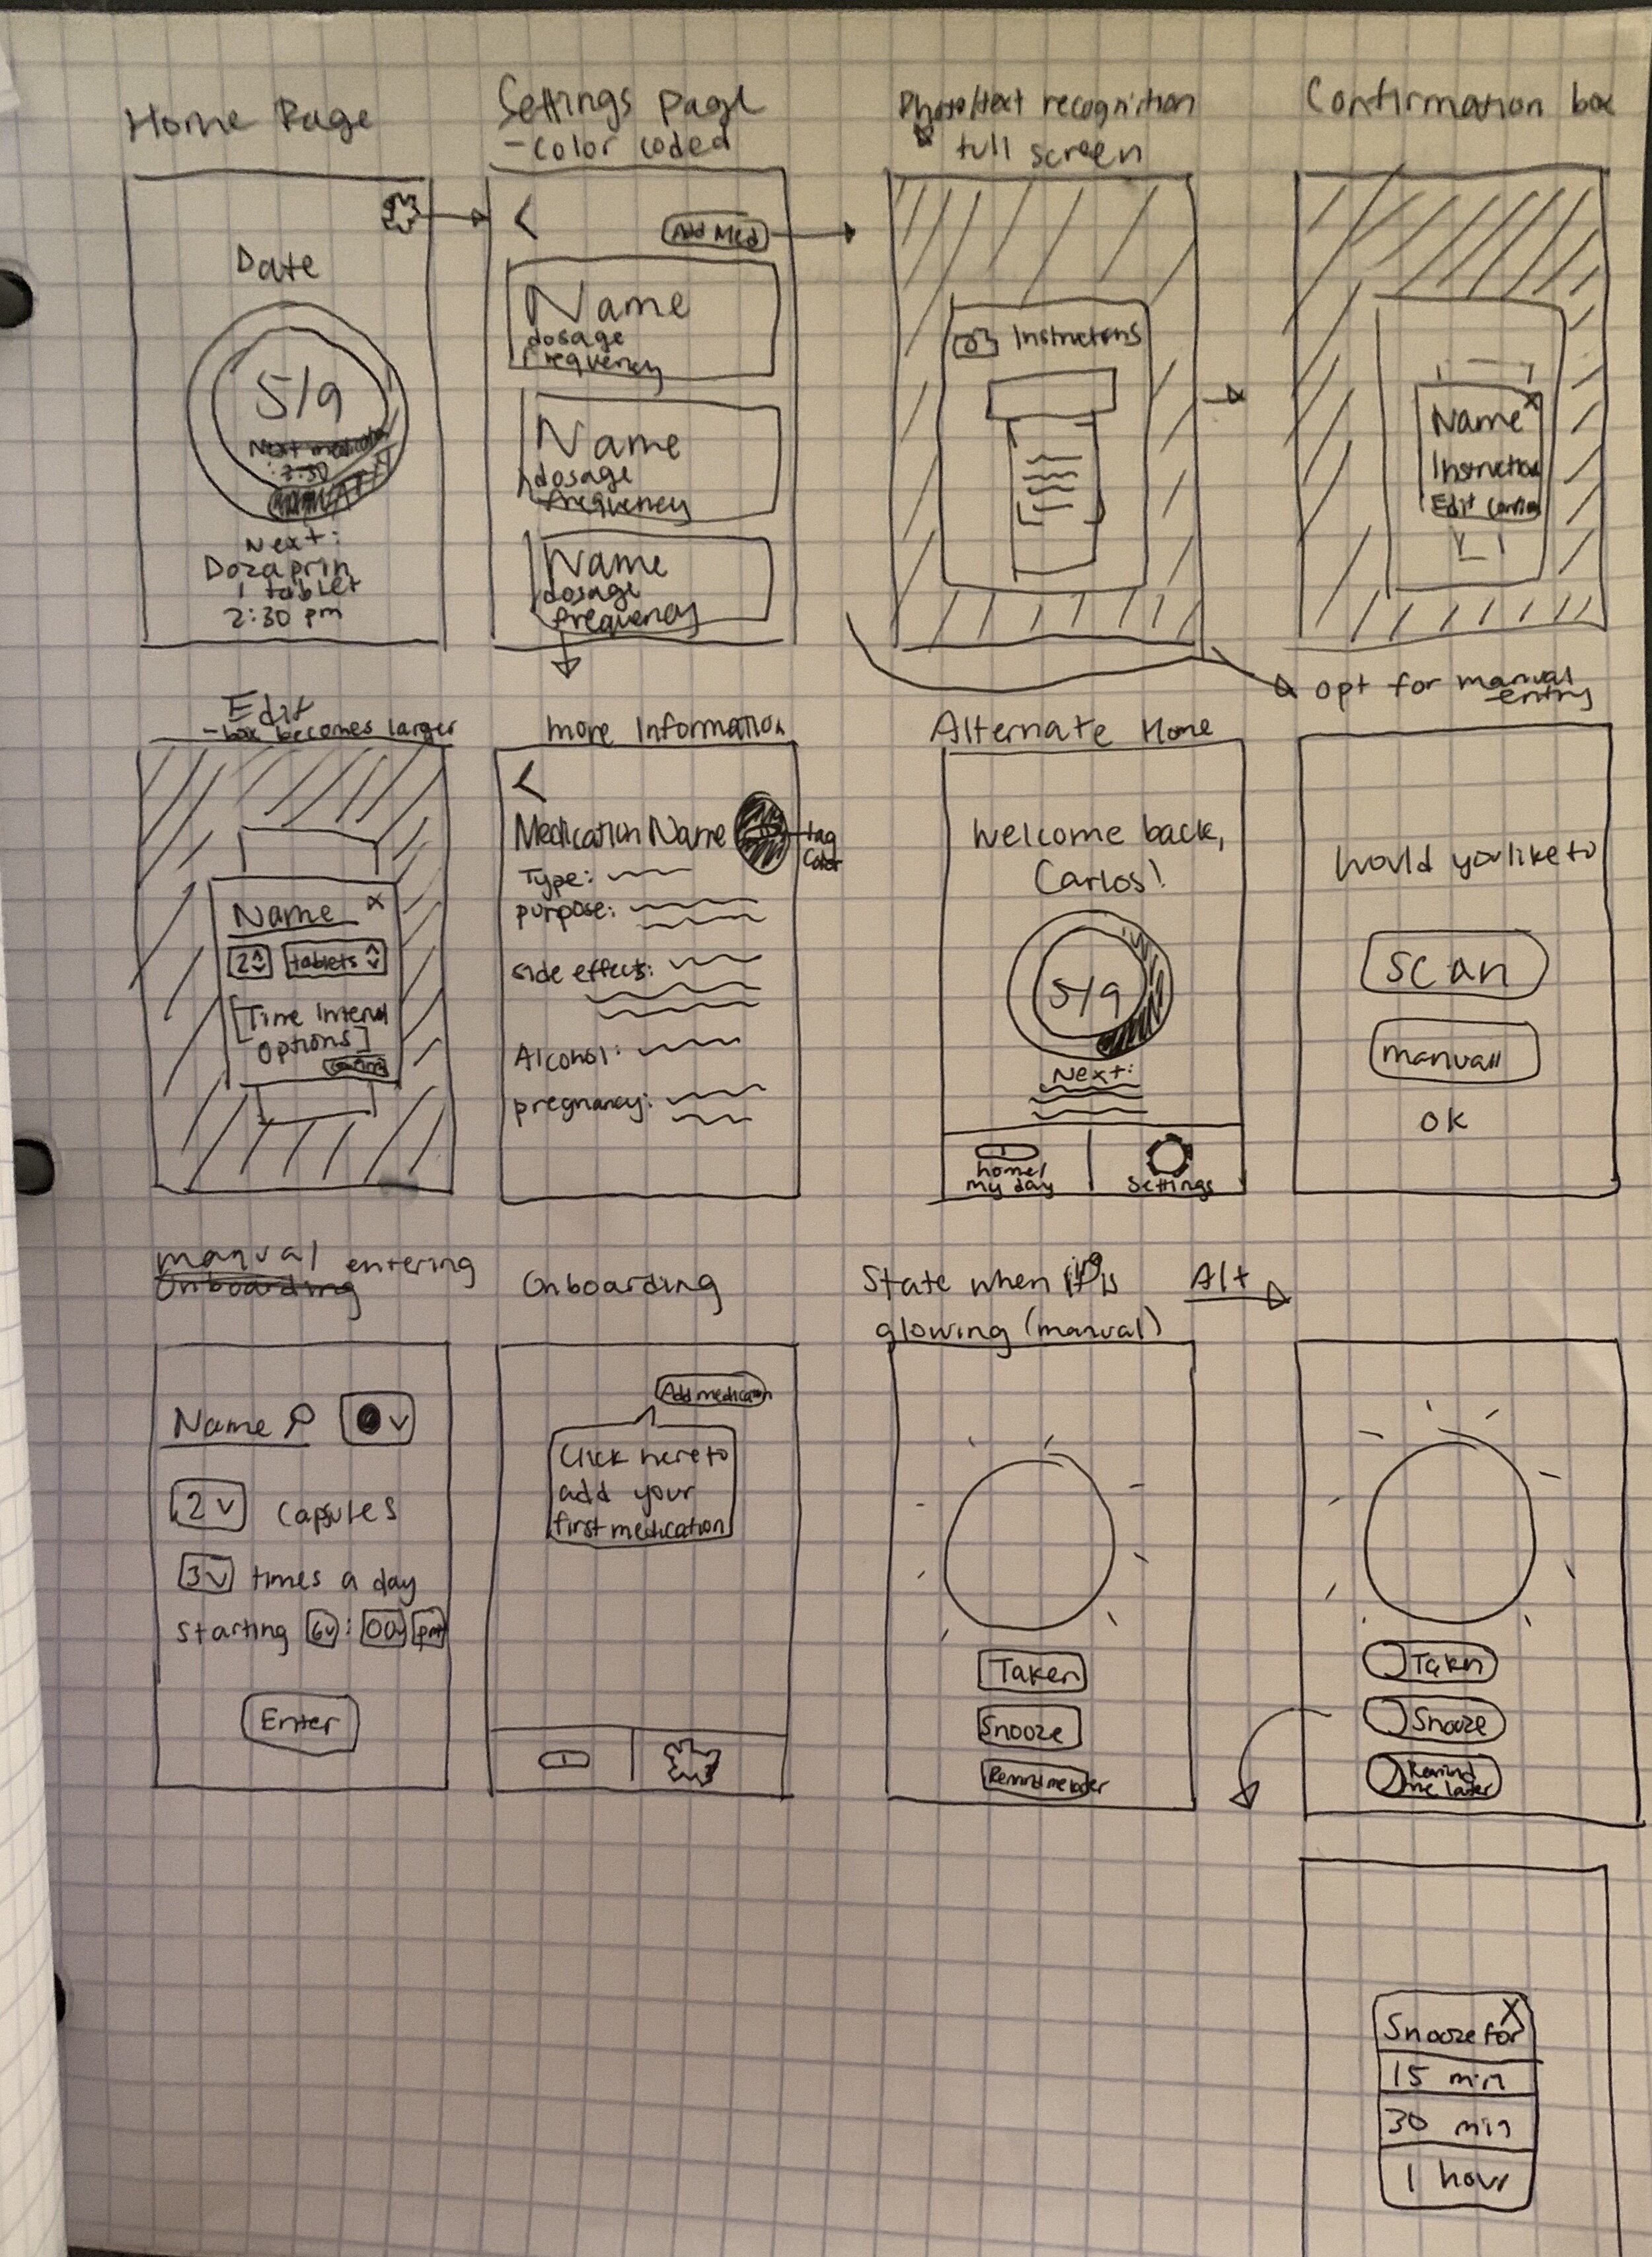 Home Page
Date
5/9
Next:
Dozaprin
1 tablet
2:30 pm
Settings page
- color coded
Add Med
Name
dosage
frequency
Name
dosage
frequency
Name
dosage
frequency
Photo/text recognition
full screen
Instructions
Confirmation box
Name x
Instruction
Edit
opt for manual
entry
Edit
- box becomes larger
Name x
2 tablets
[Time Interval
Options]
more Information
Medication Name
tag
color
Type:
purpose:
side effects:
Alcohol:
pregnancy:
Alternate Home
Welcome back,
Carlos!
5/9
Next:
home/
my day
Settings
Would you like to
scan
manuall
OK
manual entering
Onboarding
Name
2 capsules
3 times a day
starting 6 : 00 pm
Enter
Onboarding
Add medication
Click here to
add your
first medication
State when ring is
glowing (manual)
Taken
Snooze
Remind me later
Alt
Takn
Snooze
Remind
me later
X
Snooze for
15 min
30 min
1 hour